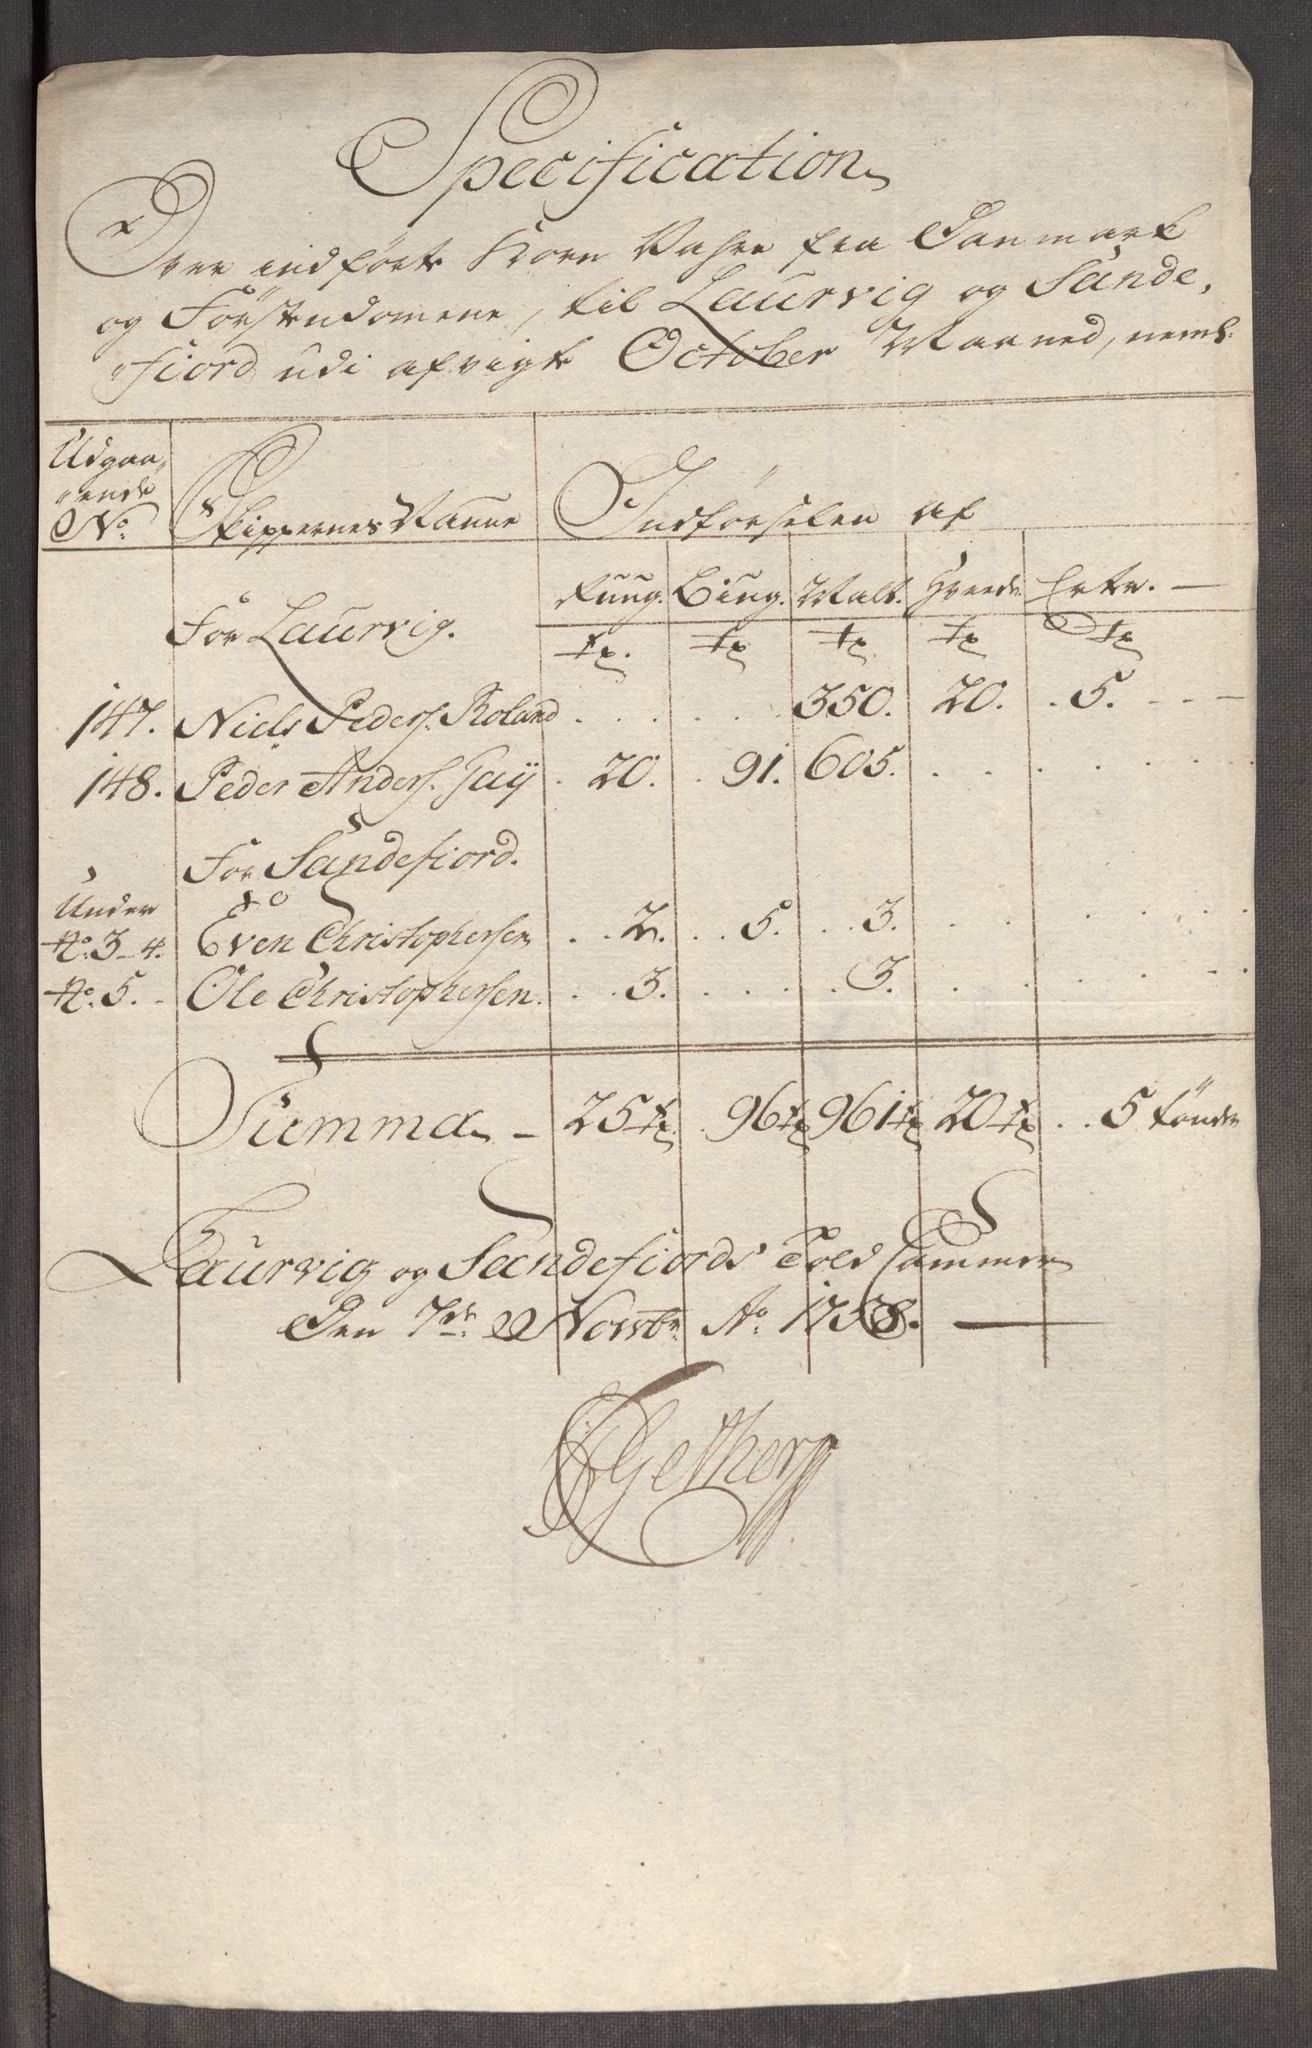 Specification
Over indførte Korn Vahre fra Danmark
og Førstendomene, til Laurvig og Sande,
fiord udi afvigte October Maaned, neml:
Udgaa,
ende
No.
Skippernes Naune
Indførselen af
Ruug. Biug. Malt. Hvede. Erter. —
For Laurvig.
tr. tr tr tr tr
147. Niels Peders. Roland . . . . . . 350. 20. . 5. - - —
148. Peder Anders. Gaÿ . 20. . 91. 605. . . . . . . .
For Sandefiord.
Under
No. 3-4. Even Christophersen . . 2. . . 5. . 3. . . . . . .
No. 5. - Ole Christophersen. . . 3. . . . . . 3. . . . . . .
Summa - 25 tr. . 96 tr 961 tr 20 tr . . 5 tønder
Laurvig og Sandefiords Told Cammer
Den 7de Novbr. Ao. 1758. —